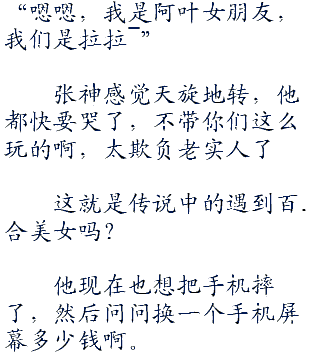 “嗯嗯，我是阿叶女朋友，
我们是拉拉~”
张神感觉天旋地转，他
都快要哭了，不带你们这么
玩的啊，太欺负老实人了
这就是传说中的遇到百.
合美女吗？
他现在也想把手机摔
了，然后问问换一个手机屏
幕多少钱啊。